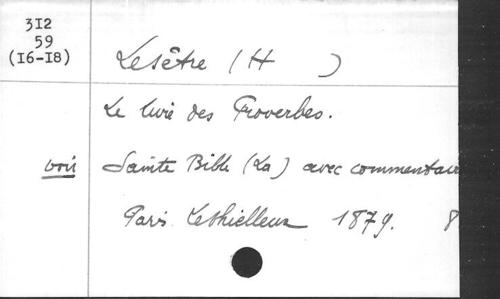 312
59
(16-18)
Lesêtre (H )
Le livre des Proverbes.
voir Sainte Bible (La) avec commentair
Paris Lethielleux 1879. 8